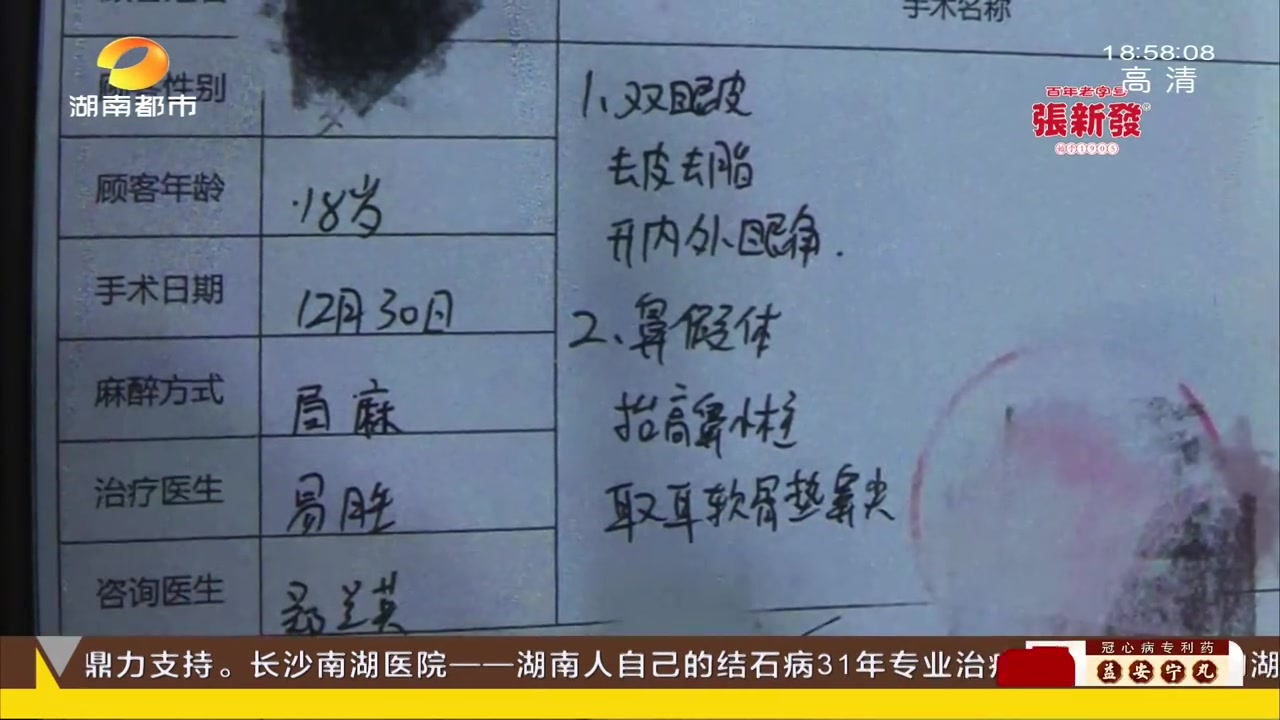 手术名称
18:58:08
高清
湖南都市
性别
百年老字号
張新發®
始于1905
顾客年龄
18岁
手术日期
12月30日
麻醉方式
局麻
治疗医生
易胜
咨询医生
1、双眼皮
去皮去脂
开内外眼角.
2、鼻假体
抬高鼻小柱
取耳软骨垫鼻尖
鼎力支持。长沙南湖医院——湖南人自己的结石病31年专业治疗
湖
冠心病专利药
益安宁丸